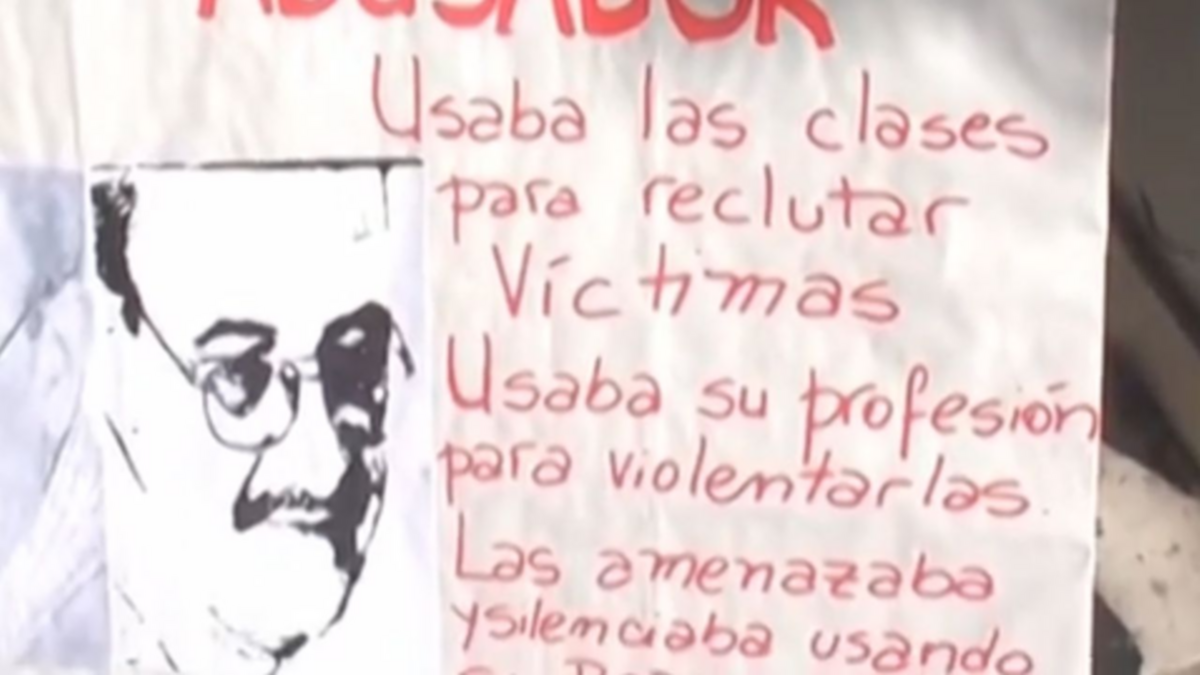 ABUSADOR
Usaba las clases
para reclutar
Víctimas
Usaba su profesión
para violentarlas.
Las amenazaba
y silenciaba usando